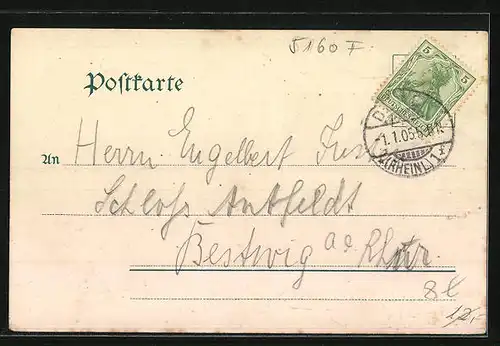 5160 F
Postkarte
5
5
1.1.05.
(RHEINL.) 1
An Herrn Engelbert
Schloss Antfeldt
Bestwig a. d. Ruhr.
8l
12,-